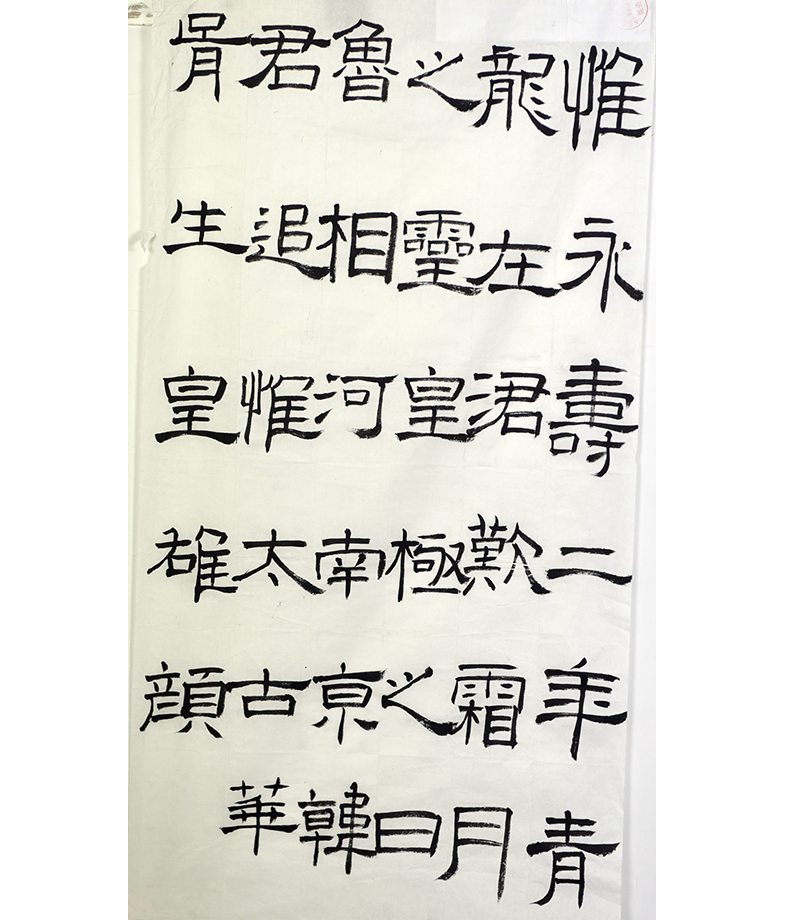 惟永壽二年青
龍在涒歎霜月
之靈皇極之日
魯相河南亰韓
君追惟太古華
胥生皇雄顔